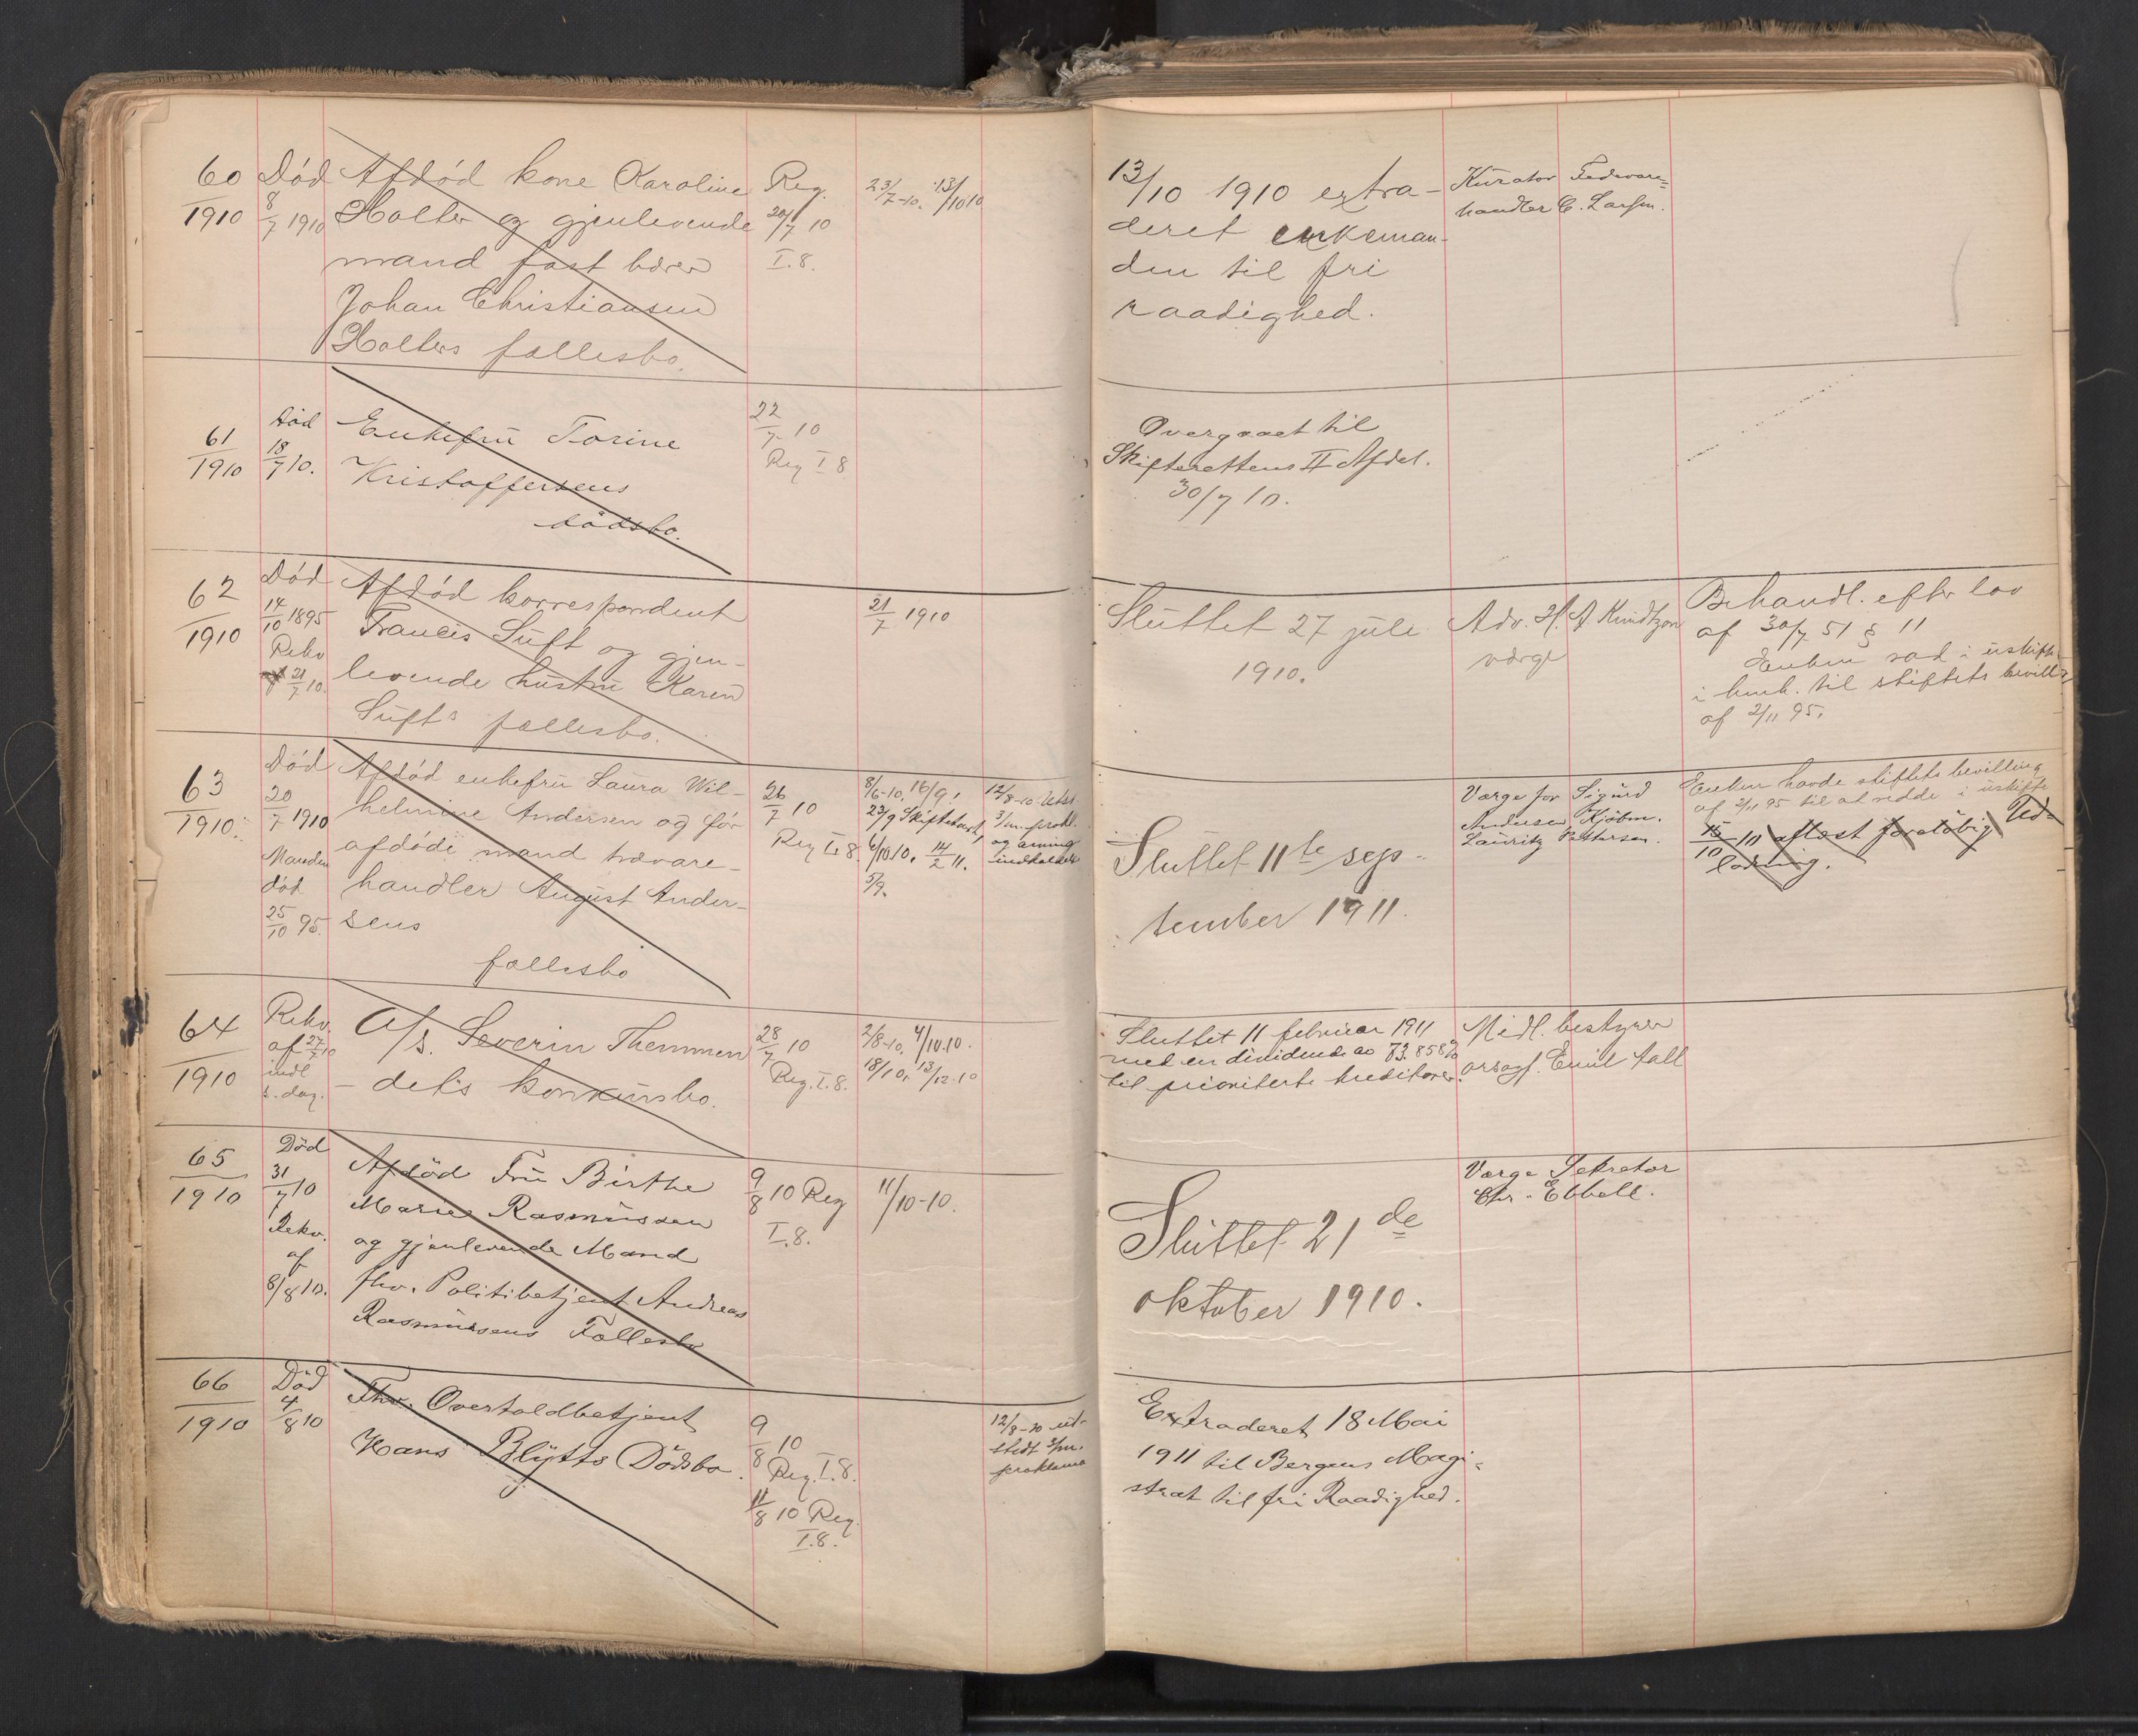 60
1910
Död
8/7 1910
Afdöd kone Karoline
Holter og gjenlevende
mand fast bærer
Johan Christiansen
Holters fællesbo.
Reg.
20/7 10
I.8.
23/7-10. 13/10 10
13/10 1910 extra-
deret enkeman-
den til fri
raadighed.
Kurator Fedevare=
handler C. Larsen.
61
1910
Död
18/7 10.
Enkefru Torine
Kristoffersens
dödsbo.
22/7 10
Reg I 8
Overgaaet til
Skifterettens II Afdel.
30/7 10.
62
1910
Död
14/10 1895
Rekv
af 21/7 10.
Afdöd korrespondent
Francis Luft og gjen-
levende hustru Karen
Lufts fællesbo.
21/7 1910
Sluttet 27 juli
1910.
Adv. H. A Kundtzon
værge
Behandl. efter lov
af 30/7 51 § 11
Enken sad i uskifte
i henh. til stiftets bevillg
af 2/11 95.
63
1910.
Död
20/7 1910
Manden
död
25/10 95.
Afdöd enkefru Laura Wil-
helmine Andersen og før
afdöde mand trævare-
handler August Ander-
sens
fællesbo
26/7 10
Reg I. 8.
8/6-10. 16/9.
23/9 Skiftetaxt,
6/10 10. 14/2 11.
5/9.
12/8-10 Udst.
3/m. prokl.
og arving
indkaldelse
Sluttet 11te sep-
tember 1911.
Værge for Sigurd
Andersen Kjöbm.
Lauritz Pettersen.
Enken havde stiftets bevilling
af 2/11 95 til at sidde i uskifte
15/10 10 aflæst foreløbig Ud=
lodning.
64
1910
Rekv.
af 27/7 10
indl
s. dag.
A/s. Severin Themmen
- dets konkursbo.
28/7 10
Reg. I. 8.
2/8-10. 4/10 10.
18/10, 13/12 10
Sluttet 11 februar 1911
med en dividende av 73.858 %
til prioriterte kreditorer.
Midl. bestyrer
orsagf. Emil Fall
65
1910
Död
31/7 10
Rekv.
af
8/8 10.
Afdöd Fru Birthe
Marie Rasmussen
og gjenlevende Mand
fhv. Politibetjent Andreas
Rasmussens Fællesbo
9/8 10 Reg
I. 8.
11/10-10.
Sluttet 21de
oktober 1910.
Værge Sekretær
Chr. Ebbell.
66
1910
Död
4/8 10
Fhv. Overtoldbetjent
Hans Blytts Dödsbo.
9/8 10
Reg. I. 8.
11/8 10 Reg.
I. 8.
12/8-10 ud-
stedt 3/m.
proklama
Extraderet 18 Mai
1911 til Bergens Magi-
strat til fri Raadighed.